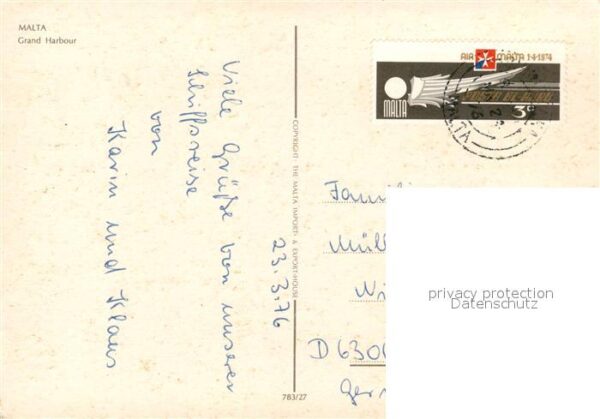 MALTA
Grand Harbour
Viele Grüße von unserer
Schiffsreise
von
Karin und Klaus
COPYRIGHT: THE MALTA IMPORT- & EXPORT-HOUSE
23.3.76
783/27
AIR MALTA 1·4·1974
MALTA
3c
MALTA
Müll
D 630
Ger
privacy protection
Datenschutz